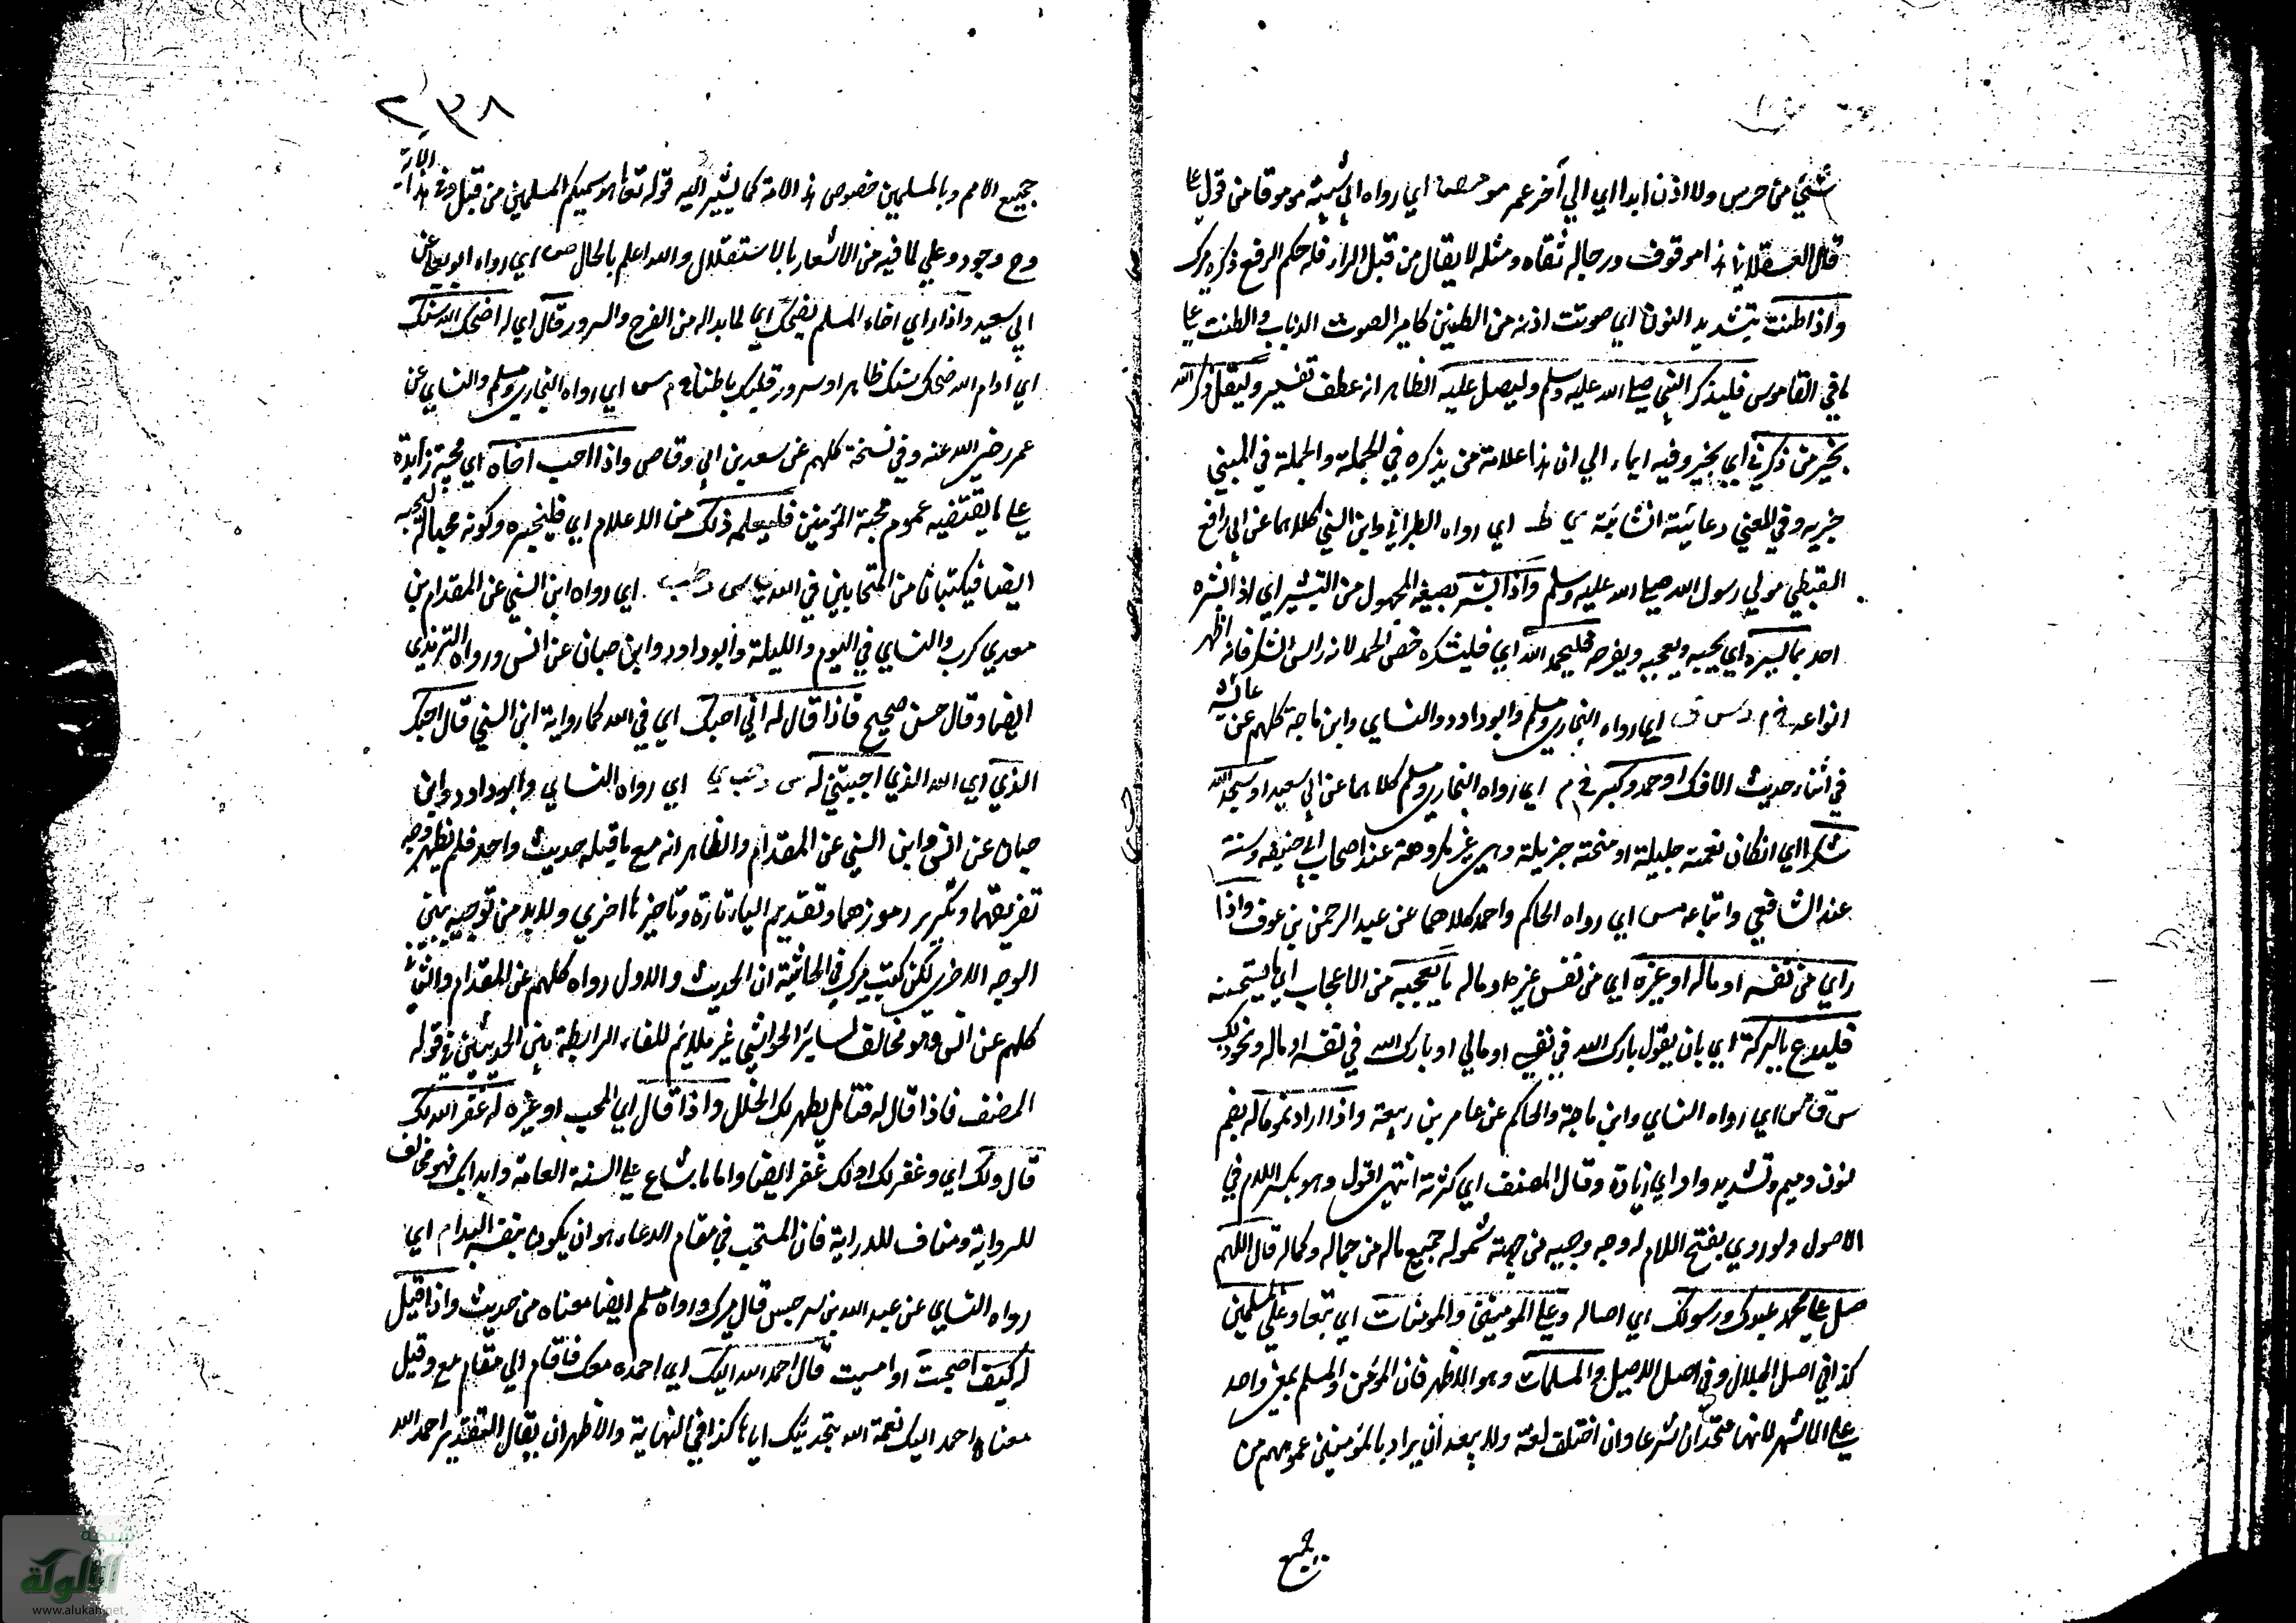 شئ من ضرس ولا اذن ابدا اي الي آخر عمره مو مص اي رواه ابن ابي شيبة موقوفا من قول علي
قال العسقلاني هذا موقوف ورجاله ثقاه ومثله لا يقال من قبل الراي فله حكم الرفع ذكره ميرك
واذا طنت بتشديد النون اي صوتت اذنه من الطنين كامير الصوت الذباب والطنت علي
ما في القاموس فليذكر النبي صلي الله عليه وسلم وليصل عليه الظاهر انه عطف تفسير وليقل ذكر الله
بخير من ذكرني اي بخير وفيه ايماء الي ان هذا علامة من يذكره في الجملة والجملة في المبني
خبريه وفي المعني دعائية انشائية ط ي اي رواه الطبراني وابن السني كلاهما عن ابي رافع
القبطي مولي رسول الله صلي الله عليه وسلم واذا بشر بصيغة المجهول من التبشير اي اذا بشره
احد بما يسره اي يحبه ويعجبه ويفرحه فليحمد الله اي فليشكره خص الحمد لانه راس الشكر فانه اظهر
انواعه خ م د س ق اي رواه البخاري ومسلم وابو داود والنساي وابن ماجة كلهم عن عائشه
في اثناء حديث الافك او حمد وكبر خ م اي رواه البخاري ومسلم كلاهما عن ابي سعيد او سجد لله
شكرا اي ان كان نعمة جليلة او منحة جزيلة وهي غير مكروهة عند اصحاب ابي حنيفه وسنة
عند الشافعي واتباعه مس ا اي رواه الحاكم واحمد كلاهما عن عبد الرحمن بن عوف واذا
راي من نفسه او ماله او غيره اي من نفس غيره او ماله ما يعجبه من الاعجاب اي ما يستحسنه
فليدع بالبركة اي بان يقول بارك الله في نفسي او مالي او بارك الله في نفسه او ماله ونحو ذلك
س ق مس اي رواه النساي وابن ماجة والحاكم عن عامر بن ربيعة واذا اراد نمو ماله بضم
نون وميم وتشديد واو اي زيادة وقال المصنف اي كثرته انتهي اقول وهو بكسر اللام في
الاصول ولو روي بفتح اللام له وجه وجيه من جهة شموله جميع ماله من جماله وكماله قال اللهم
صل علي محمد عبدك ورسولك اي اصاله وعلي المومنين والمومنات اي تبعا وعلي المسلمين
كذا في اصل الجلال وفي اصل الاصيل والمسلمات وهو الاظهر فان المؤمن والمسلم بمعني واحد
علي الاشهر لانهما متحدان شرعا وان اختلف لغة ولا يبعد ان يراد بالمؤمنين عمومهم من
جميع
٢٣٨
جميع الامم وبالمسلمين خصوص هذه الامة كما يشير اليه قوله تعالي هو سميكم المسلمين من قبل وفي هذا الآية
وح وجود وعلي لما فيه من الاشعار بالاستقلال والله اعلم بالحال ص اي رواه ابو يعلي عن
ابي سعيد واذا راي اخاه المسلم يضحك اي لما بدا له من الفرح والسرور قال اي له اضحك الله سنك
اي ادام الله ضحك سنك ظاهرا وسرور قلبك باطنا خ م س اي رواه البخاري ومسلم والنساي عن
عمر رضي الله عنه وفي نسخة كلهم عن سعد بن ابي وقاص واذا احب اخاه اي محبة زايدة
علي ما يقتضيه عموم محبة المؤمنين فليعلمه ذلك من الاعلام اي فليخبره وكونه محبا له ليحبه
ايضا فيكتبان من المتحابين في الله ي س د حب اي رواه ابن السني عن المقدام بن
معدي كرب والنساي في اليوم والليلة وابو داود وابن حبان عن انس ورواه الترمذي
ايضا وقال حسن صحيح فاذا قال له اني احبك اي في الله كما رواية ابن السني قال احبك
الذي اي الله الذي احببتني له س د حب ي اي رواه النساي وابو داود وابن
حبان عن انس وابن السني عن المقدام والظاهر انه مع ما قبله حديث واحد فلم يظهر وجه
تفريقهما وتكرير رموزهما وتقديم الياء تارة وتاخيرها اخري ولا بد من توجيه يبين
الوجه الاخري لكن كتب ميرك في الحاشية ان الحديث والاول رواه كلهم عن المقدام والثاني
كلهم عن انس وهو مخالف لسائر الحواشي غير ملائم للفاء الرابطة بين الحديثين في قوله
المصنف فاذا قال له فتامل يظهر لك الخلل واذا قال اي المحب او غيره له غفر الله لك
قال ولك اي وغفر لك او لك غفر ايضا واما ما شاع علي السنة العامة وابداك فهو مخالف
للرواية ومناف للدراية فان المستحب في مقام الدعاء هو ان يكون بنفسه البداء م اي
رواه النساي عن عبد الله بن سرجس قال ميرك ورواه مسلم ايضا معناه من حديث واذا قيل
له كيف اصبحت او امسيت قال احمد الله اليك اي احمده معك فاقام الي مقام مع وقيل
معناه احمد اليك نعمة الله بتحديثك اياها كذا في النهاية والاظهر ان يقال التقدير احمد الله
شبكة
الألوكة
www.alukah.net